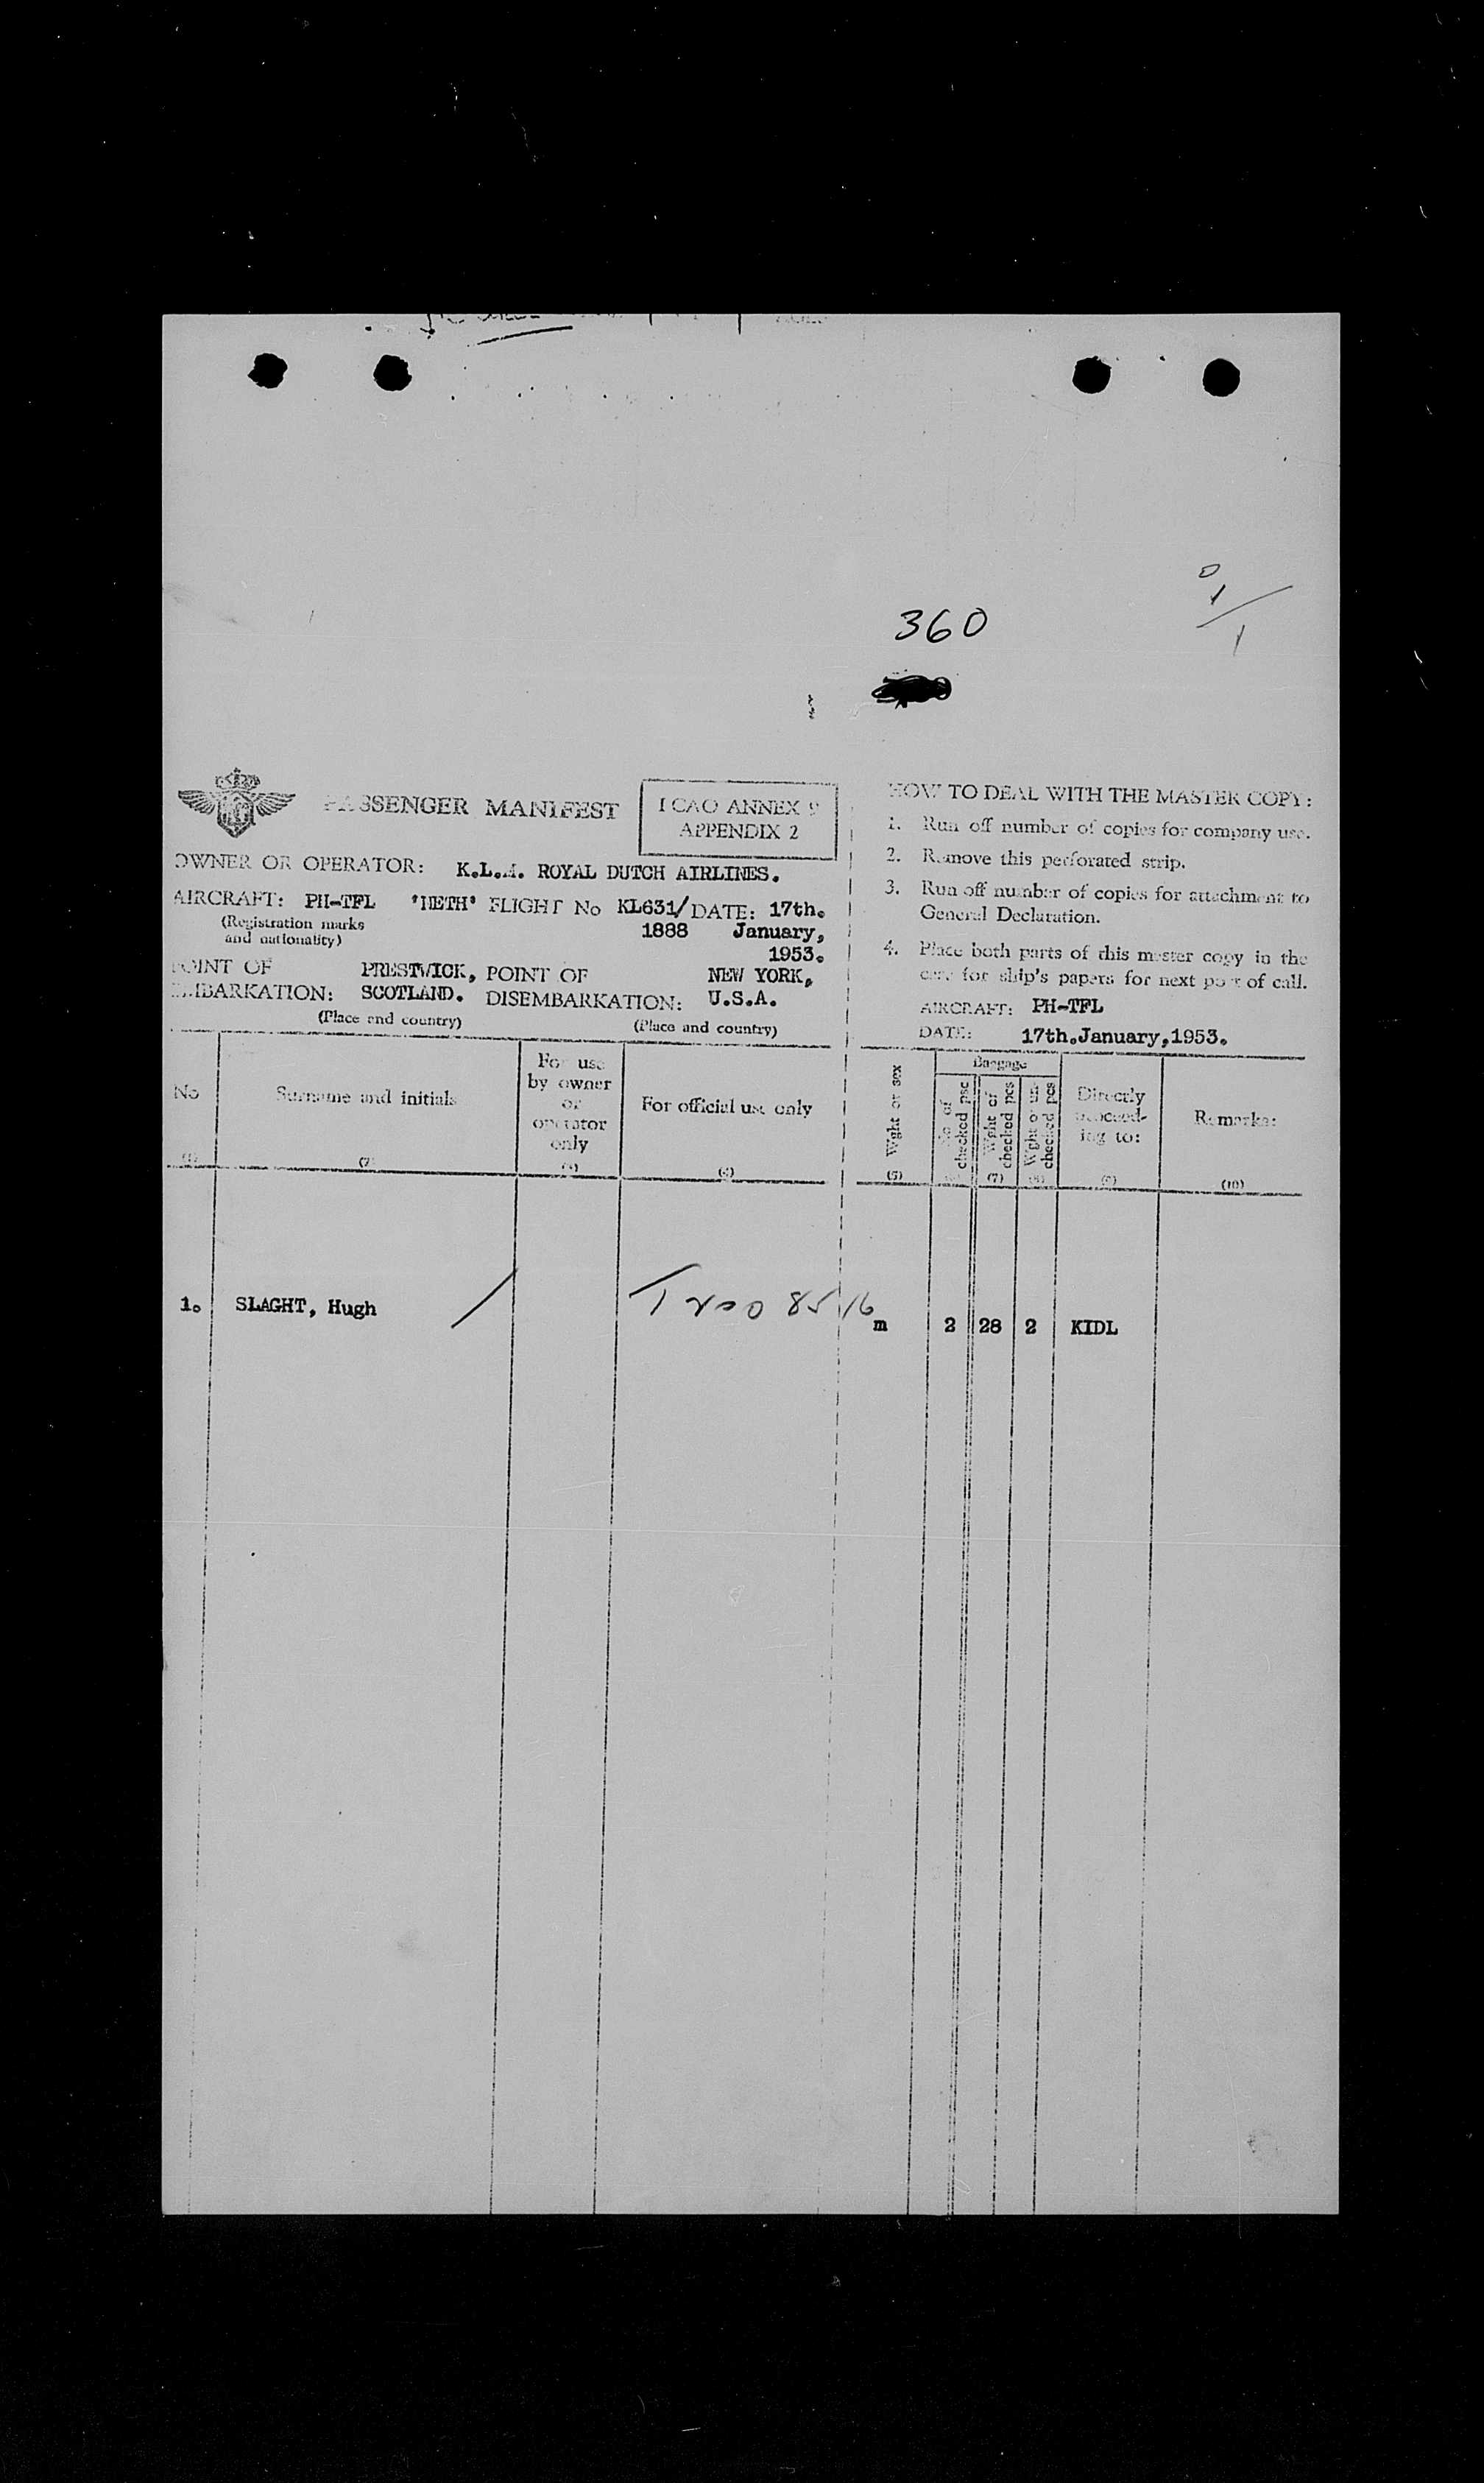 360
1
1
PASSENGER MANIFEST
ICAO ANNEX 9
APPENDIX 2
OWNER OR OPERATOR: K.L.M. ROYAL DUTCH AIRLINES.
AIRCRAFT: PH-TFL 'NETH' FLIGHT No KL631/ DATE: 17th.
(Registration marks 1888 January,
and nationality) 1953.
POINT OF PRESTWICK, POINT OF NEW YORK,
EMBARKATION: SCOTLAND. DISEMBARKATION: U.S.A.
(Place and country) (Place and country)
No
(1)
Surname and initials
(2)
For use
by owner
or
operator
only
(3)
For official use only
(4)
HOW TO DEAL WITH THE MASTER COPY:
1. Run off number of copies for company use.
2. Remove this perforated strip.
3. Run off number of copies for attachment to
General Declaration.
4. Place both parts of this master copy in the
case for ship's papers for next port of call.
AIRCRAFT: PH-TFL
DATE: 17th.January,1953.
Wght or sex
(5)
Baggage
No of
checked pcs
Wght of
checked pcs
(7)
Wght of un-
checked pcs
(8)
Directly
proceed-
ing to:
(9)
Remarks:
(10)
1. SLAGHT, Hugh
m 2 28 2 KIDL